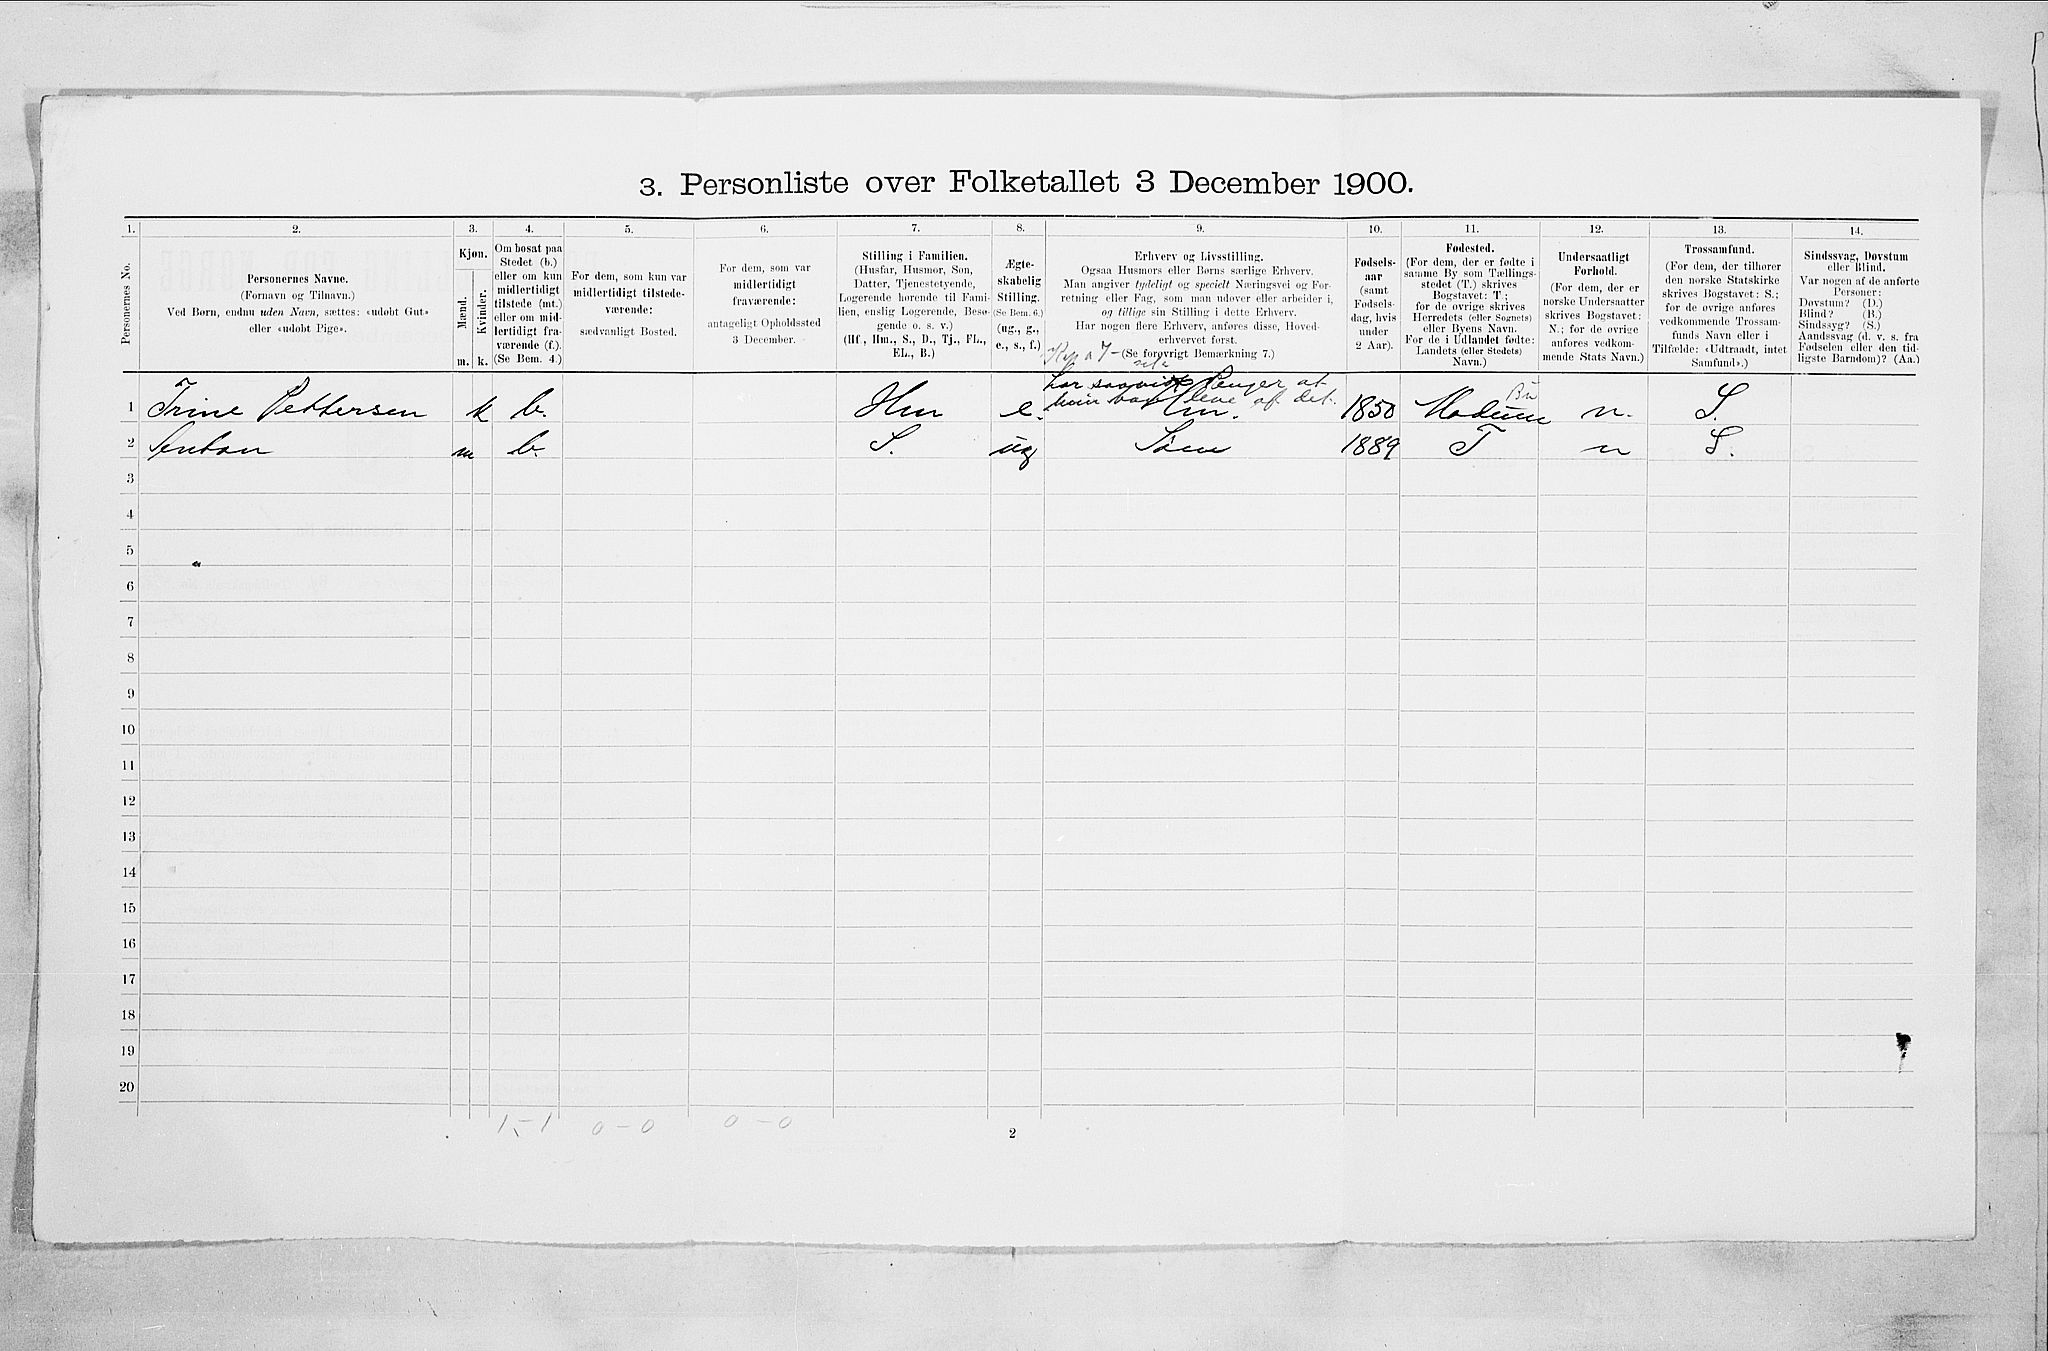 3. Personliste over Folketallet 3 December 1900.
1. 2. 3. 4. 5. 6. 7. 8. 9. 10. 11. 12. 13. 14.
Personernes No.
Personernes Navne.
(Fornavn og Tilnavn.)
Ved Børn, endnu uden Navn, sættes: «udøbt Gut»
eller «udøbt Pige».
Kjøn.
Mænd.
Kvinder.
m. k.
Om bosat paa
Stedet (b.)
eller om kun
midlertidigt
tilstede (mt.)
eller om mid-
lertidigt fra-
værende (f.).
(Se Bem. 4.)
For dem, som kun var
midlertidigt tilstede-
værende:
sædvanligt Bosted.
For dem, som var
midlertidigt
fraværende:
antageligt Opholdssted
3 December.
Stilling i Familien.
(Husfar, Husmor, Søn,
Datter, Tjenestetyende,
Logerende hørende til Fami-
lien, enslig Logerende, Besø-
gende o. s. v.)
(Hf., Hm., S., D., Tj., FL.,
EL., B.)
Ægte-
skabelig
Stilling.
(Se Bem. 6.)
(ug., g.,
e., s., f.)
Erhverv og Livsstilling.
Ogsaa Husmors eller Børns særlige Erhverv.
Man angiver tydeligt og specielt Næringsvei og For-
retning eller Fag, som man udøver eller arbeider i,
og tillige sin Stilling i dette Erhverv.
Har nogen flere Erhverv, anføres disse, Hoved-
erhvervet først.
(Se forøvrigt Bemærkning 7.)
Fødsels-
aar
(samt
Fødsels-
dag, hvis
under
2 Aar).
Fødested.
(For dem, der er fødte i
samme By som Tællings-
stedet (T.) skrives
Bogstavet: T.;
for de øvrige skrives
Herredets (eller Sognets)
eller Byens Navn.
For de i Udlandet fødte:
Landets (eller Stedets)
Navn.)
Undersaatligt
Forhold.
(For dem, der er
norske Undersaatter
skrives Bogstavet:
N.; for de øvrige
anføres vedkom-
mende Stats Navn.)
Trossamfund.
(For dem, der tilhører
den norske Statskirke
skrives Bogstavet: S.;
for de øvrige anføres
vedkommende Trossam-
funds Navn eller i
Tilfælde: «Udtraadt, intet
Samfund».)
Sindssvag, Døvstum
eller Blind.
Var nogen af de anførte
Personer:
Døvstum? (D.)
Blind? (B.)
Sindssyg? (S.)
Aandssvag (d. v. s. fra
Fødselen eller den tid-
ligste Barndom)? (Aa.)
har Penger at
leve af det.
1 Trine Pettersen k b. Hm e. Hm. 1850 Modum Bu n. S.
2 Anton m b. S. ug Søn 1889 T n S.
3
4
5
6
7
8
9
10
11
12
13
14
15
16
17
18
19
20
1-1 0-0 0-0
2